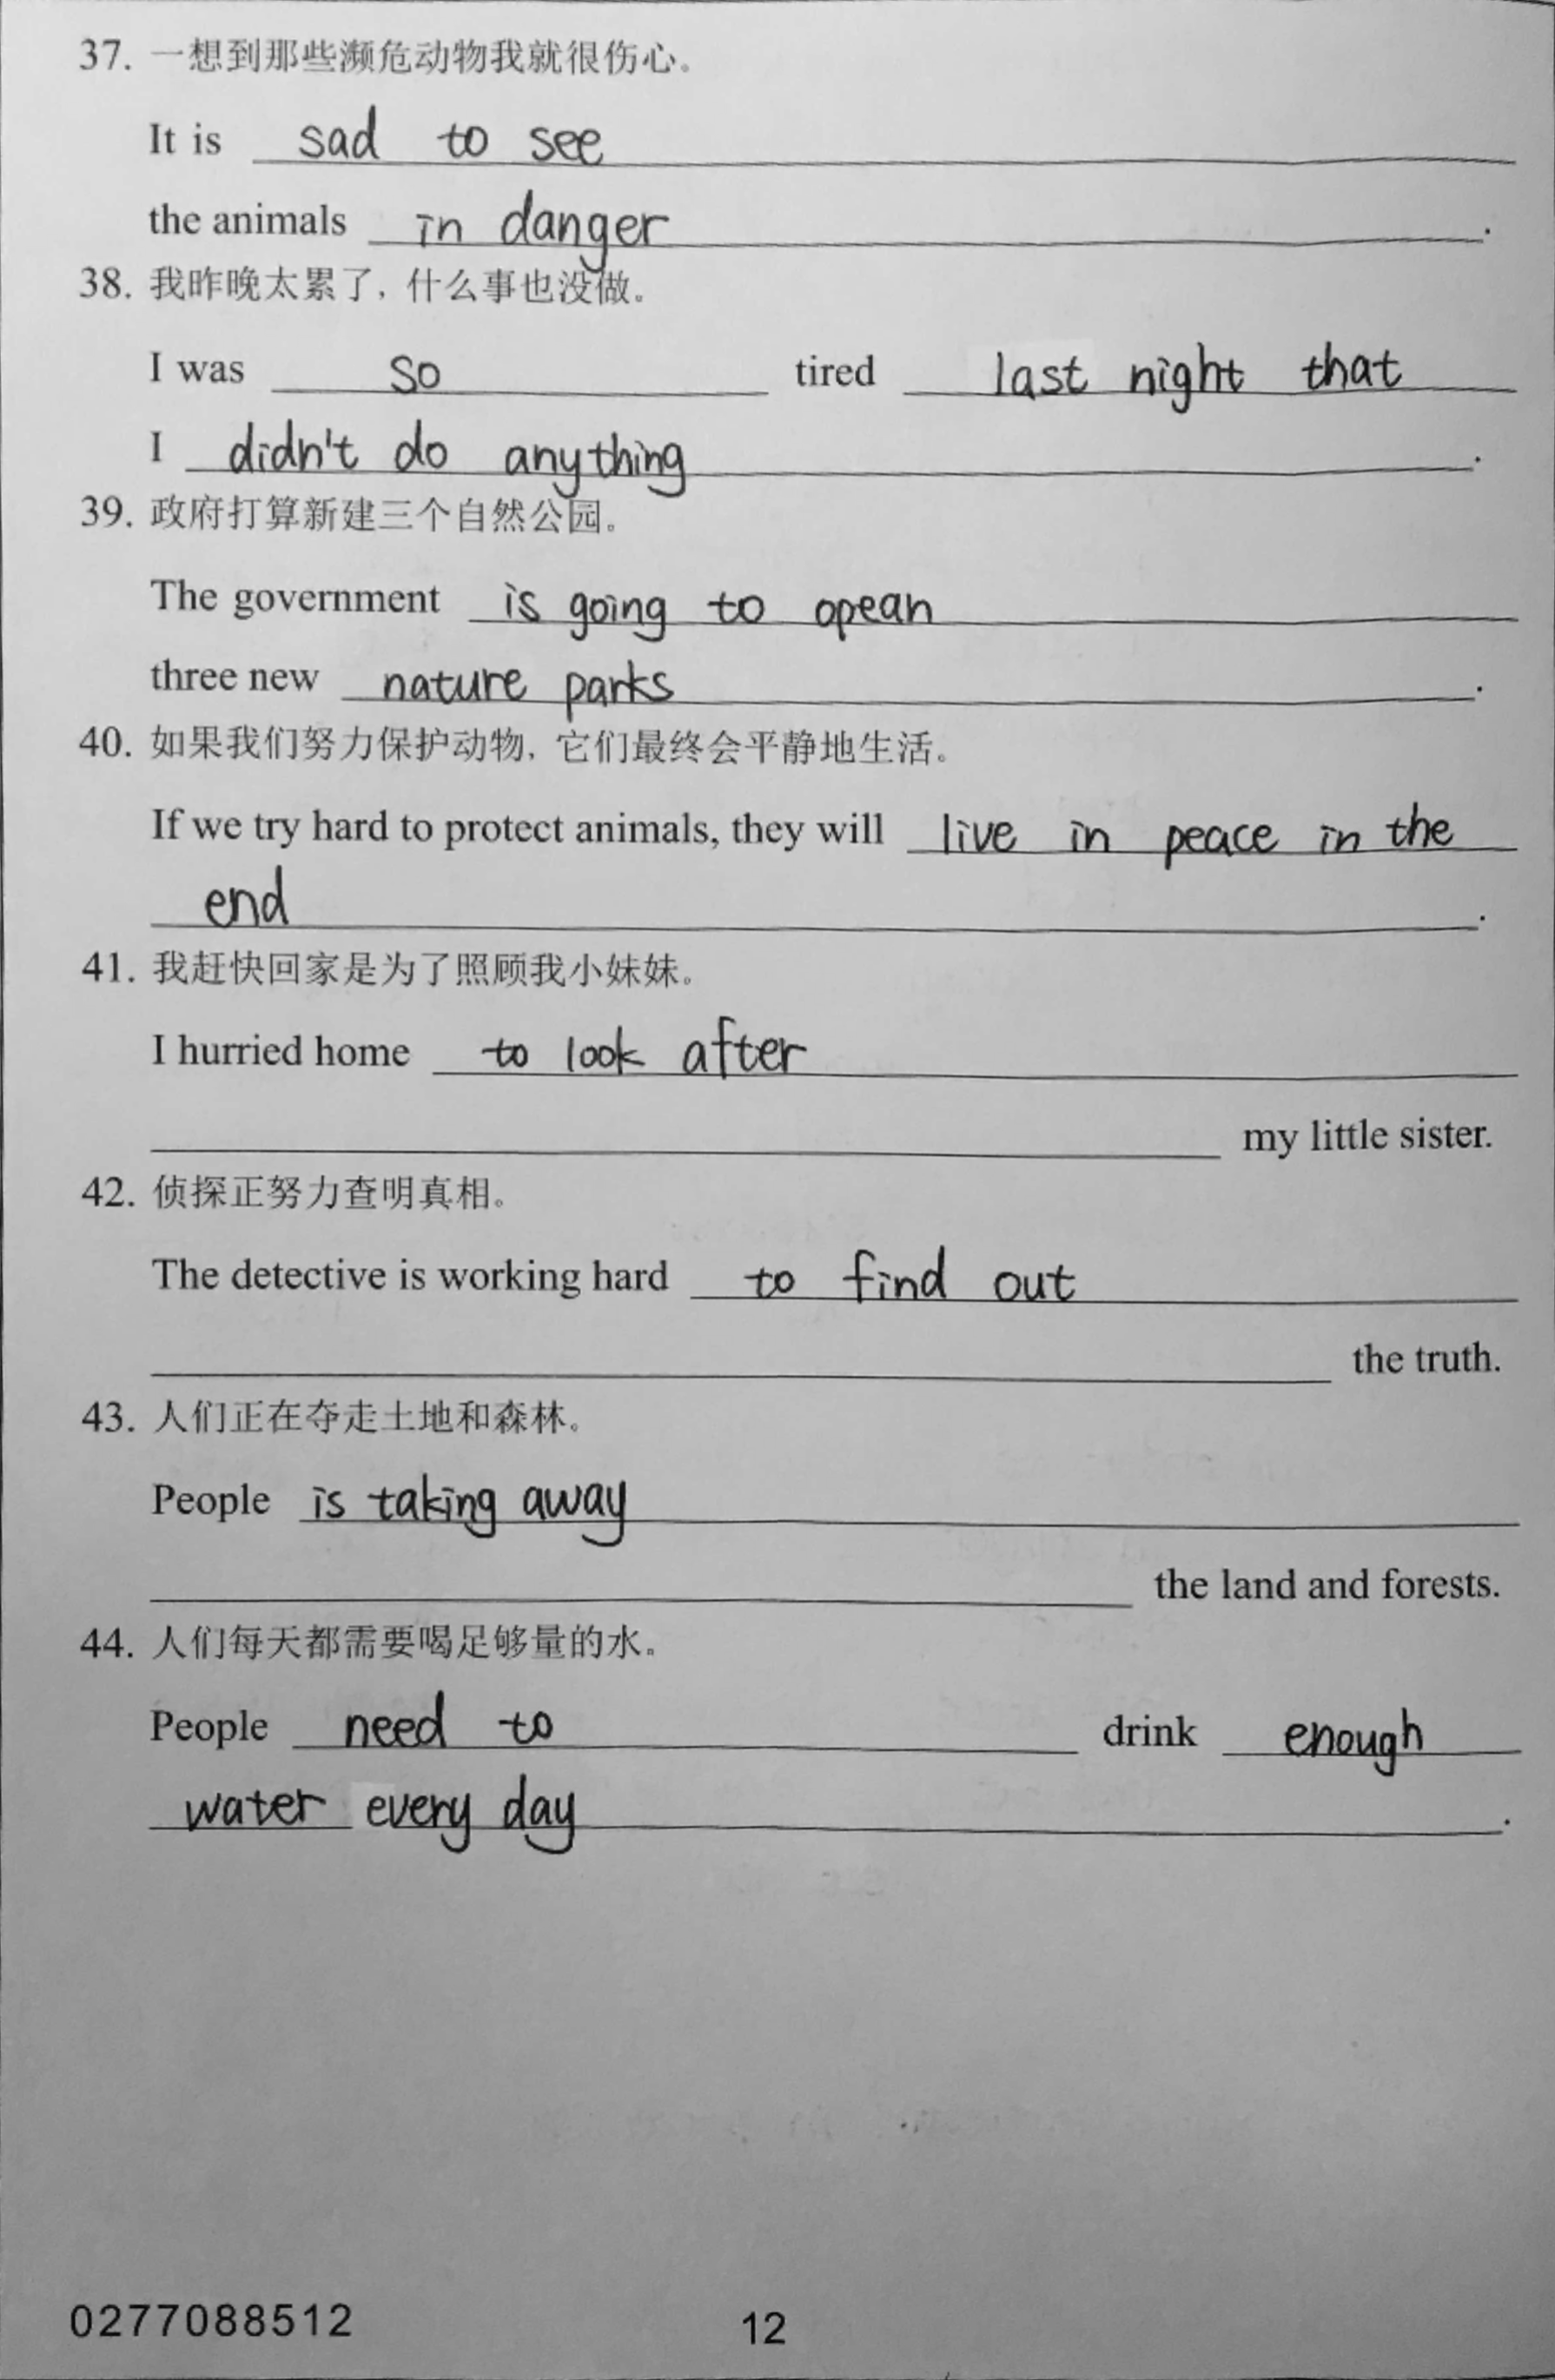 37. 一想到那些濒危动物我就很伤心。
It is sad to see
the animals in danger.
38. 我昨晚太累了，什么事也没做。
I was so tired last night that
I didn't do anything.
39. 政府打算新建三个自然公园。
The government is going to opean
three new nature parks.
40. 如果我们努力保护动物，它们最终会平静地生活。
If we try hard to protect animals, they will live in peace in the
end.
41. 我赶快回家是为了照顾我小妹妹。
I hurried home to look after
my little sister.
42. 侦探正努力查明真相。
The detective is working hard to find out
the truth.
43. 人们正在夺走土地和森林。
People is taking away
the land and forests.
44. 人们每天都需要喝足够量的水。
People need to drink enough
water every day.
0277088512 12